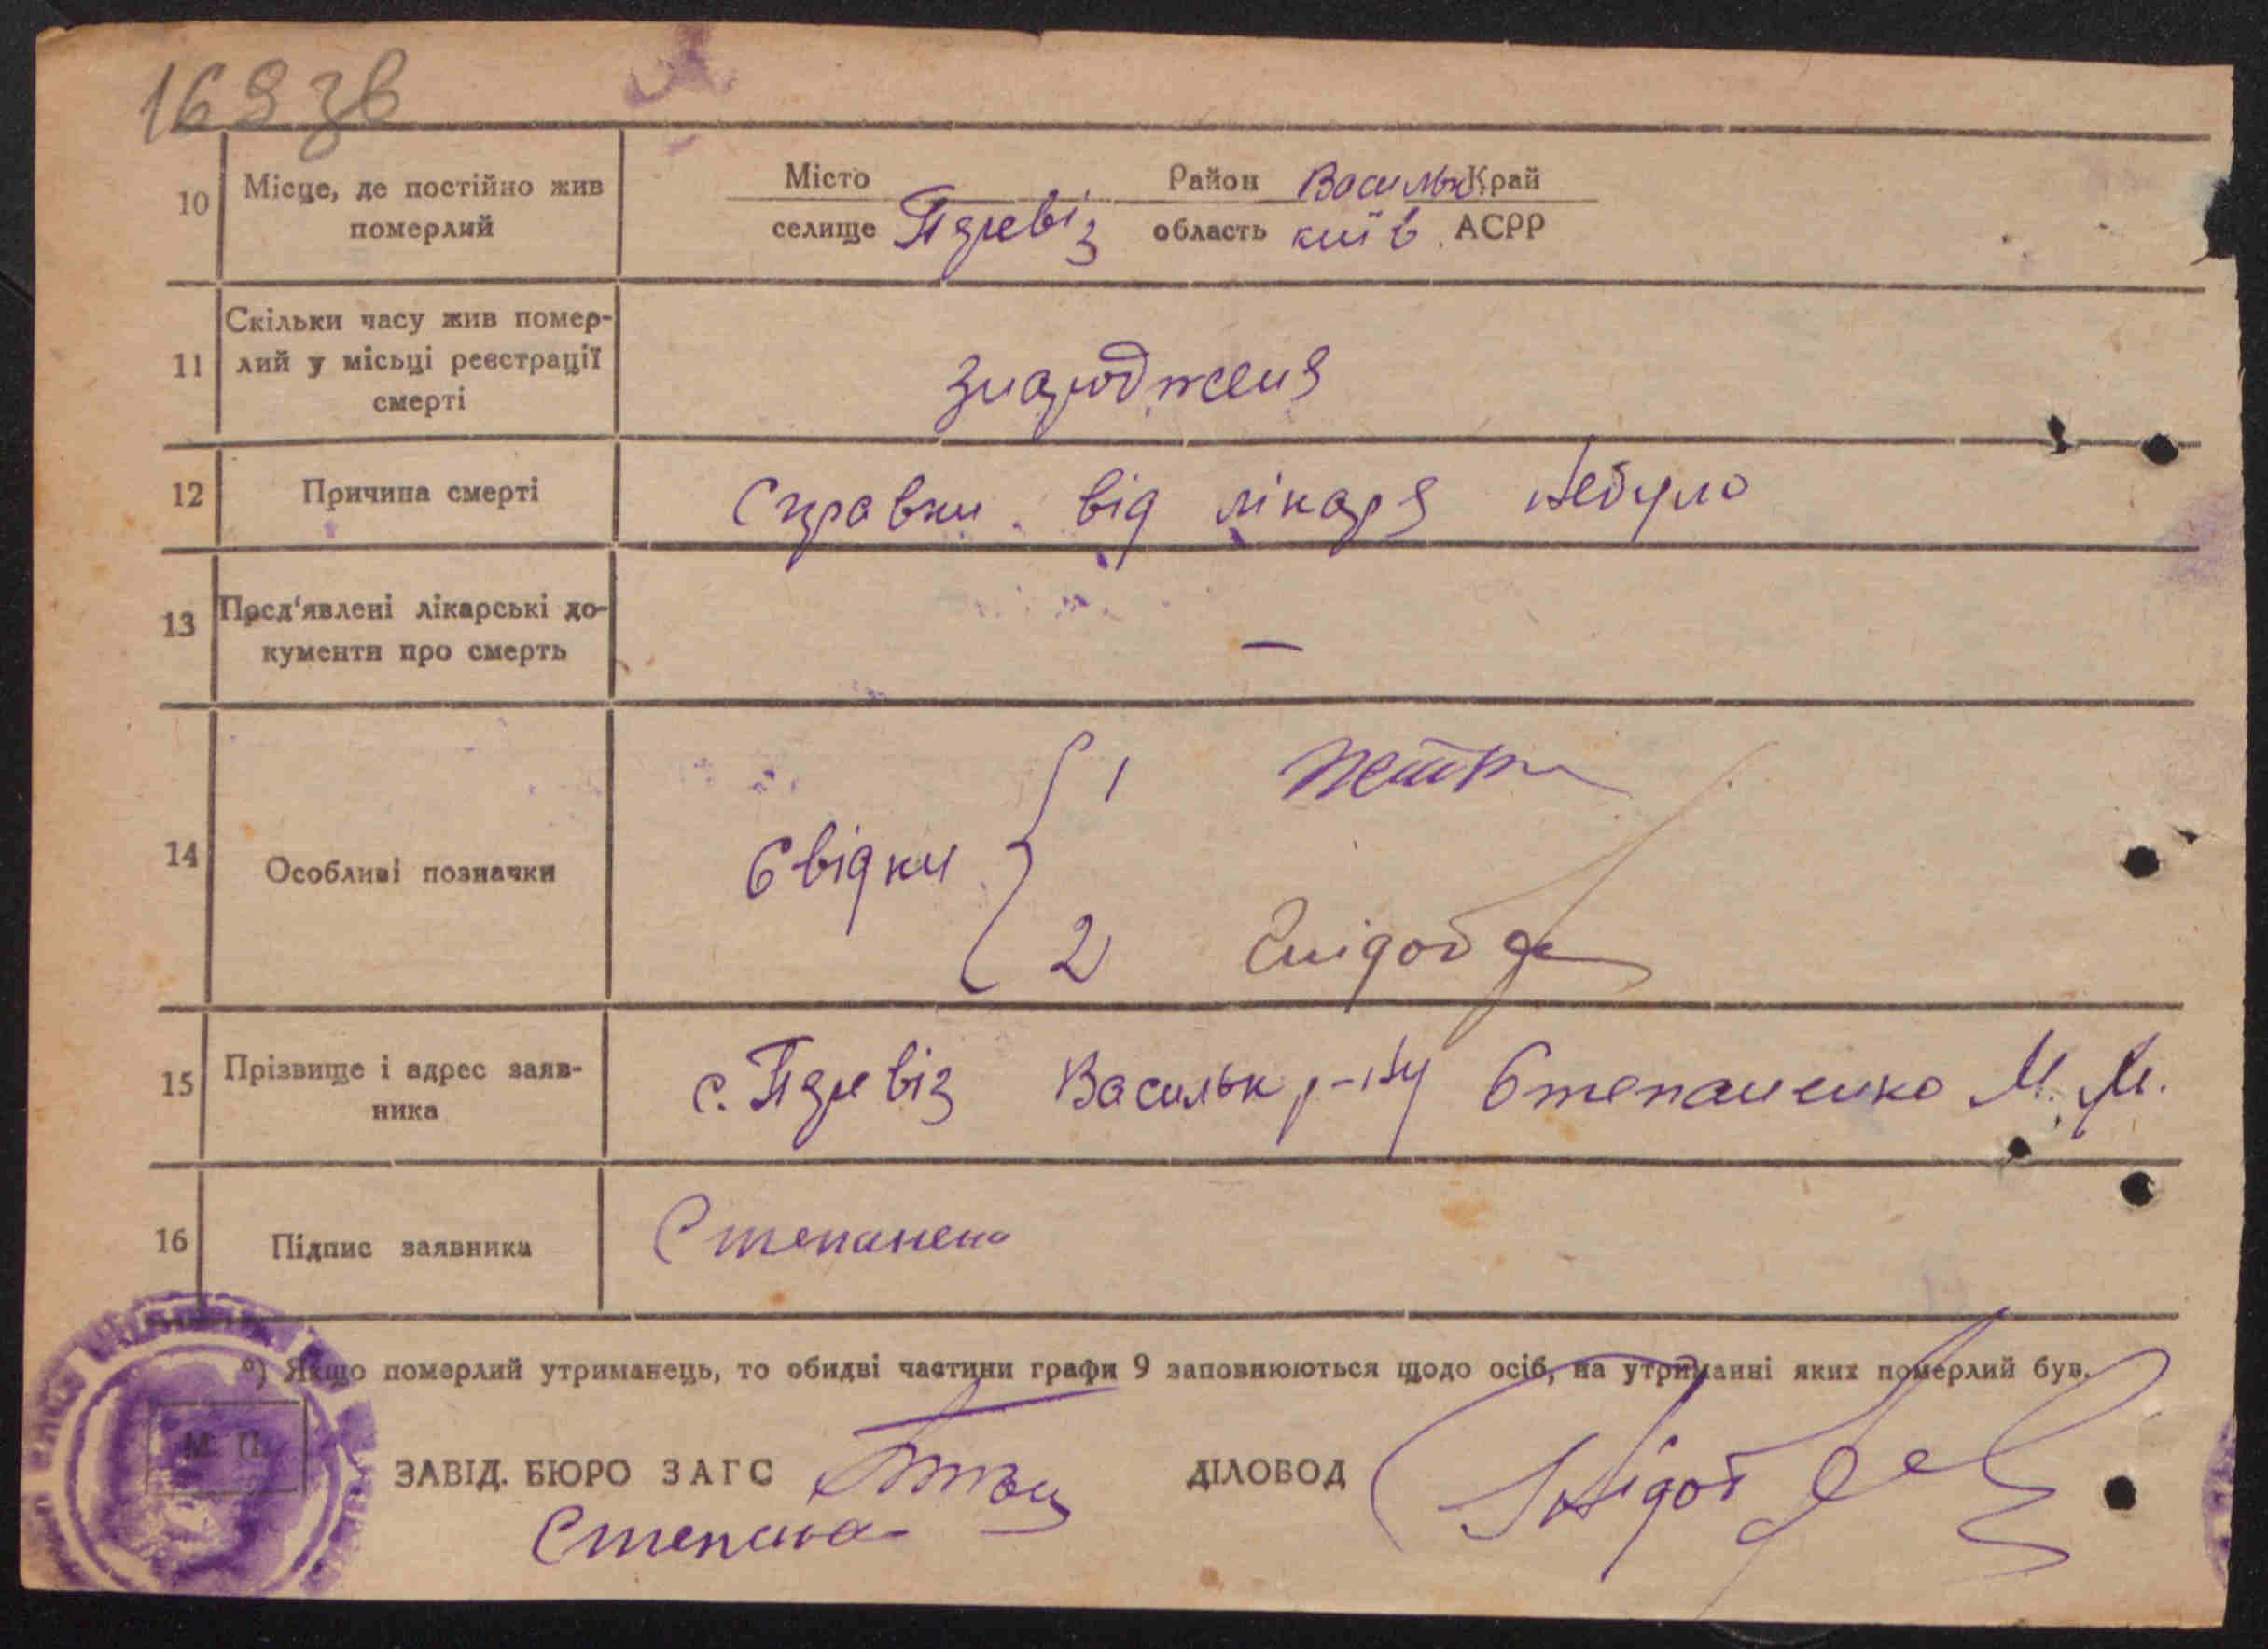 169 зв
10 Місце, де постійно жив померлий
Місто Район Васильк. Край
селище область київ. АСРР
11 Скільки часу жив помер-
лий у місьці реєстрації
смерті
знародженя
12 Причина смерті
Справки від лікаря небуло
13 Пред'явлені лікарські до-
кументи про смерть
—
14 Особливі позначки
Свідки { 1
2
15 Прізвище і адрес заяв-
ника
с. Васильк р-ну Степаненко М. М.
16 Підпис заявника
Степанено
*) Якщо померлий утриманець, то обидві частини графи 9 заповнюються щодо осіб, на утриманні яких померлий був.
М. П.
ЗАВІД. БЮРО ЗАГС
ДІЛОВОД